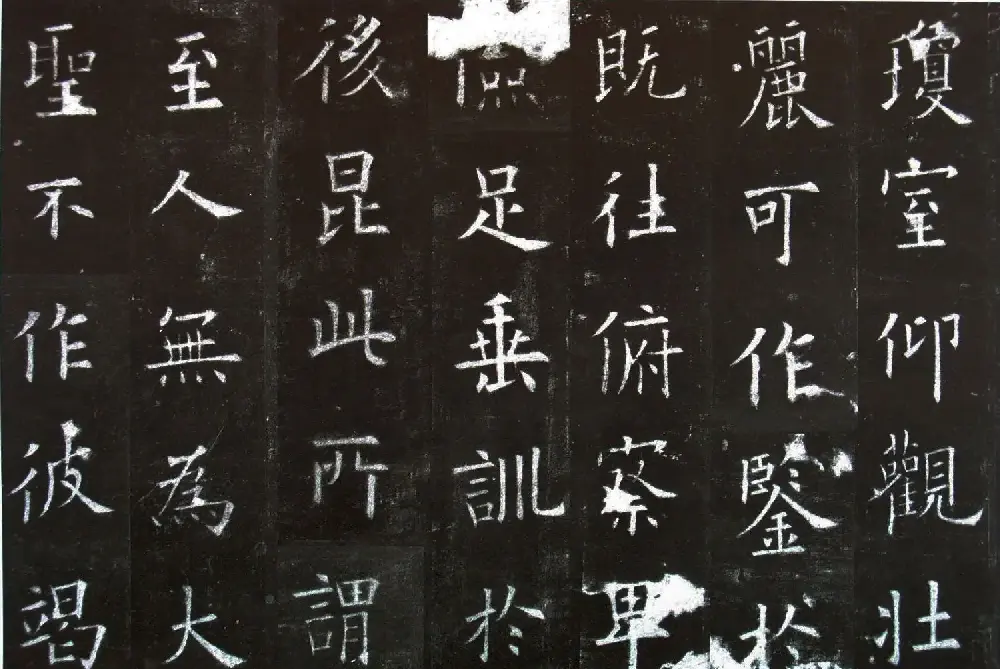 瓊室仰觀壯
麗可作鑒於
既往俯察卑
足垂訓於
後昆此所謂
至人無為大
聖不作彼竭